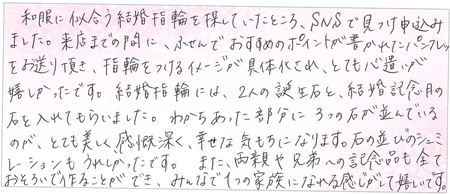 和服に似合う結婚指輪を探していたところ、SNSで見つけ申込み
ました。来店までの間に、ふせんでおすすめのポイントが書かれたパンフレット
をお送り頂き、指輪をつけるイメージが具体化され、とても心遣いが
嬉しかったです。結婚指輪には、2人の誕生石と、結婚記念月の
石を入れてもらいました。わかちあった部分に3つの石が並んでいる
のが、とても美しく感慨深く、幸せな気もちになります。石の並びのシュミ
レーションもうれしかったです。また、両親や兄弟への記念品も全て
おそろいで作ることができ、みんなで1つの家族になれる感じがして嬉しいです。